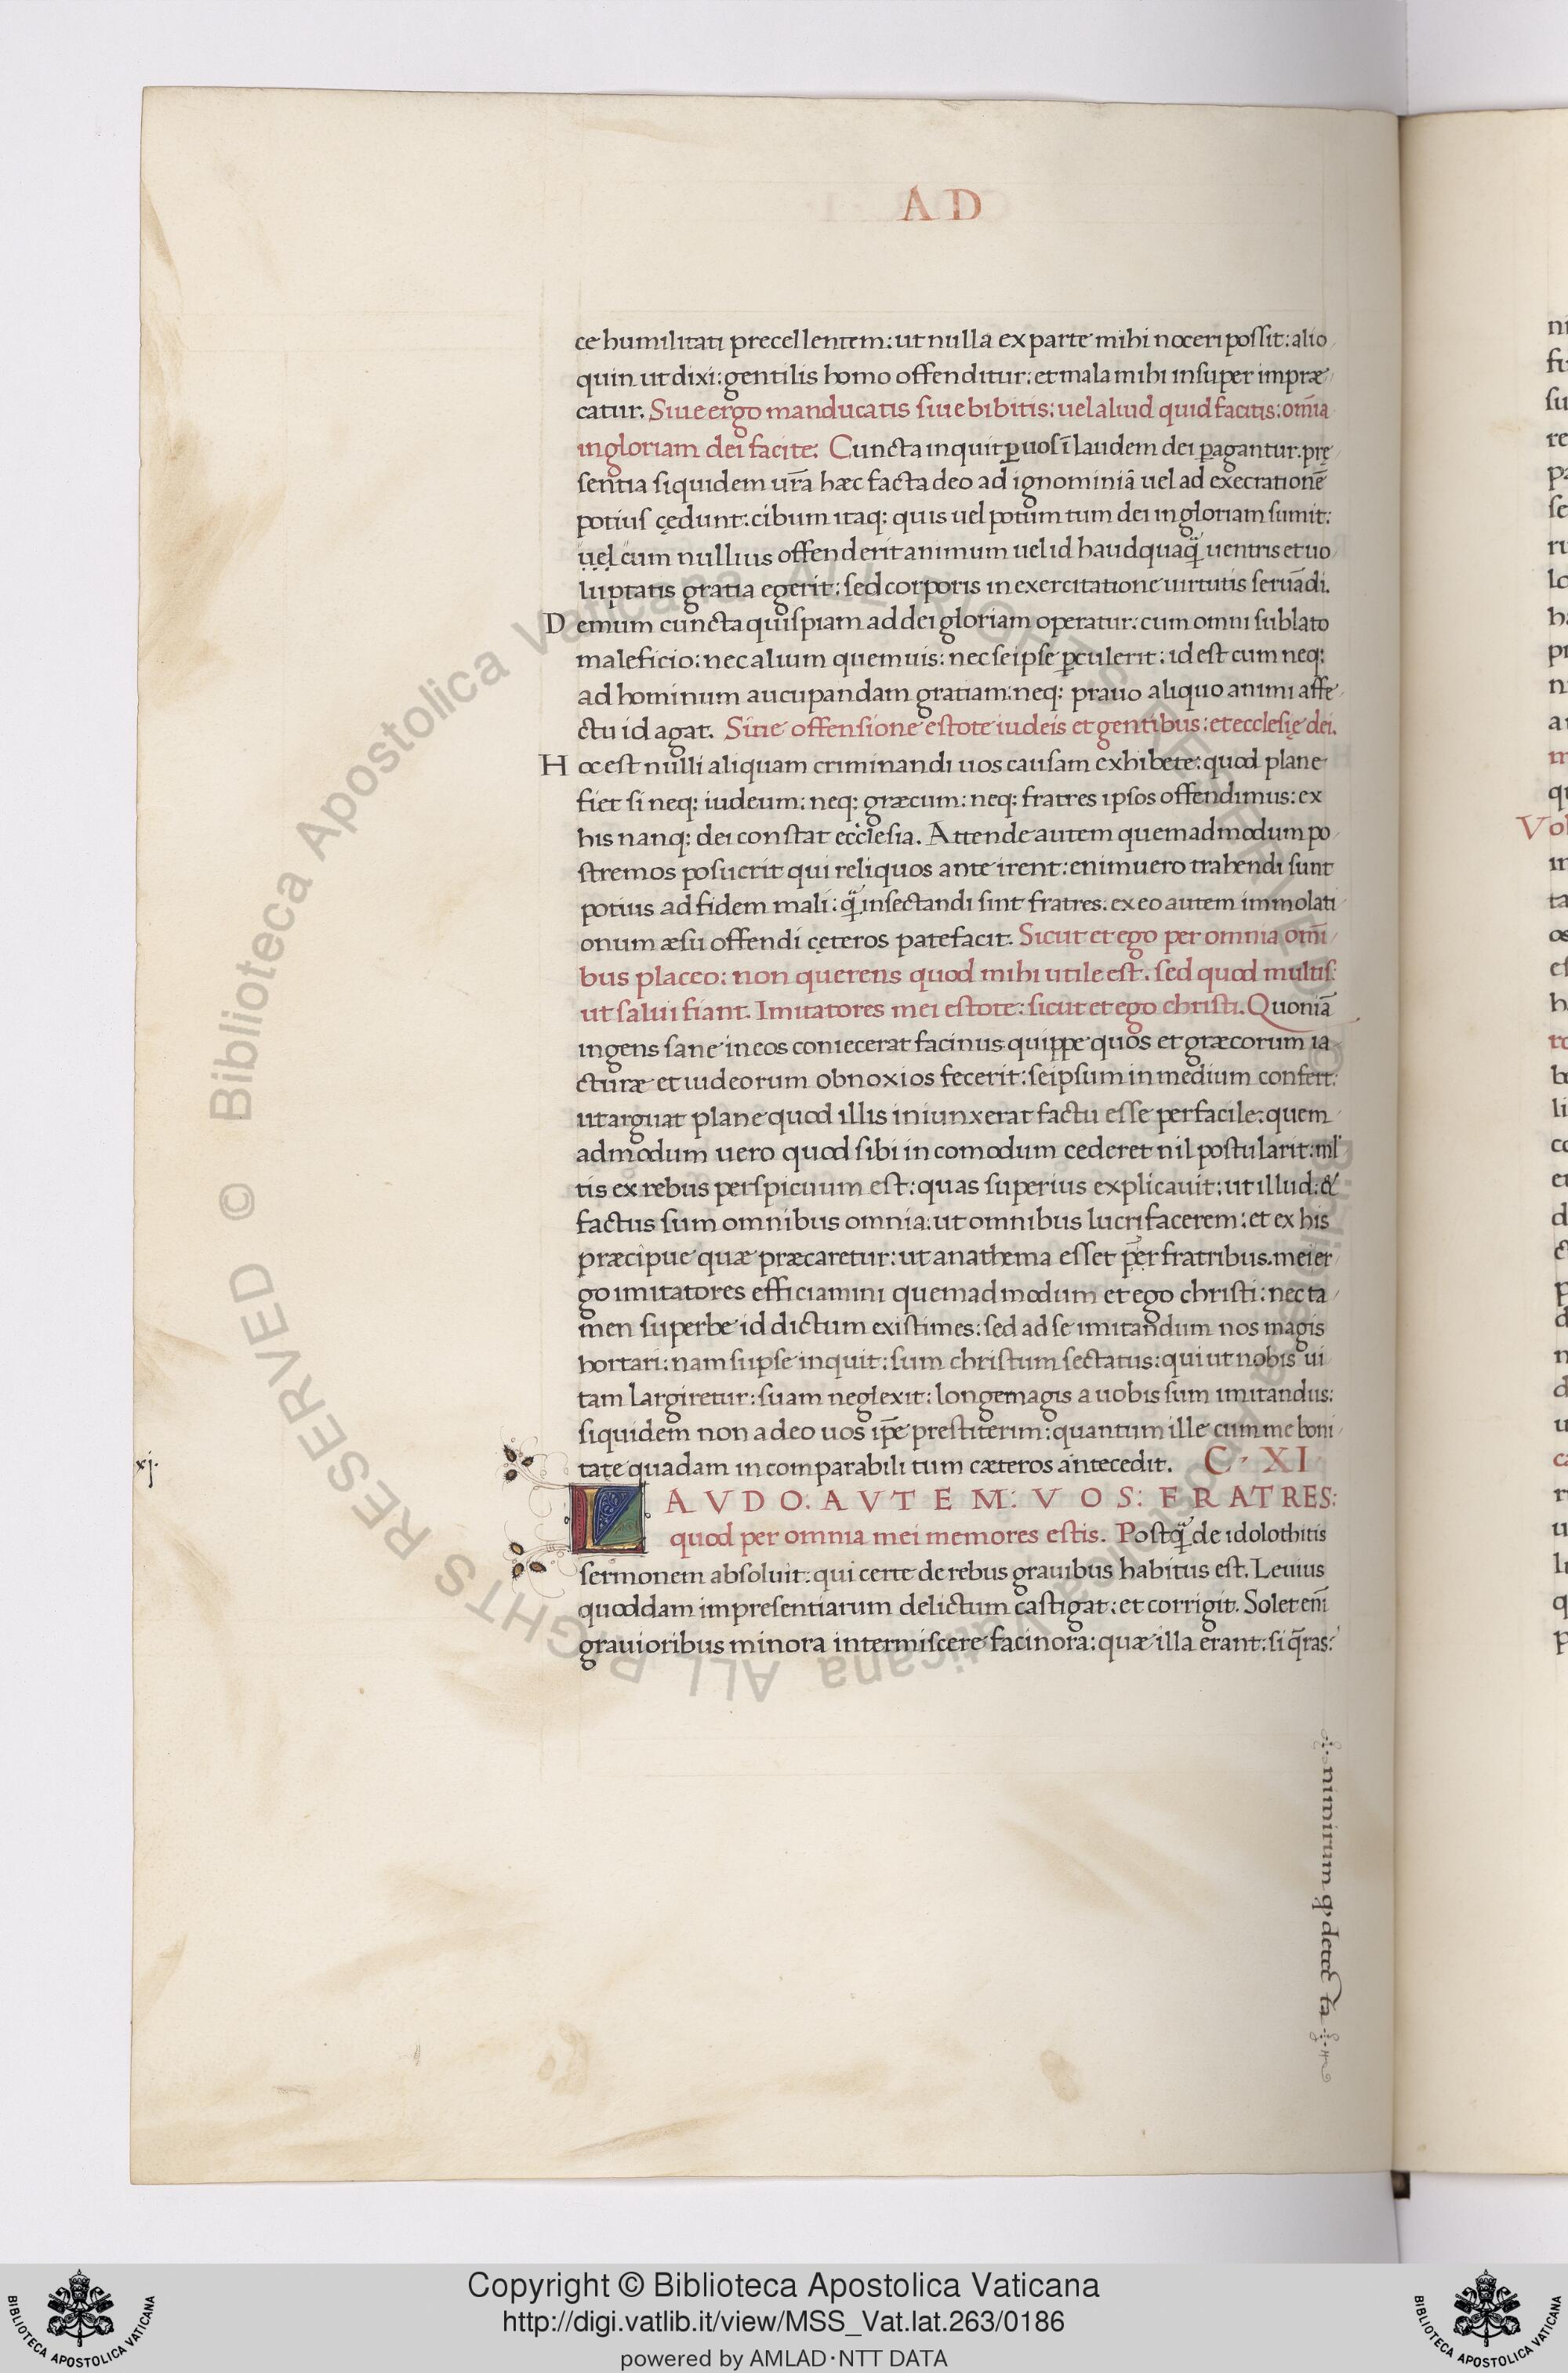 AD
ce humilitati precellentem: ut nulla ex parte mihi noceri possit: alio
quin ut dixi: gentilis homo offenditur: et mala mihi insuper impræ
catur. Siue ergo manducatis siue bibitis: uel aliud quid facitis: om̄ia
in gloriam dei facite. Cuncta inquit ꝑ uos ī laudem dei ꝑagantur. prę
sentia siquidem ur̄a hæc facta deo ad ignominiā uel ad execrationē
potius cędunt: cibum itaq: quis uel potum tum dei in gloriam sumit:
uel cum nullius offenderit animum uel id haudquaq̄ uentris et uo
luptatis gratia egerit: sed corporis in exercitatione uirtutis seruādi.
Demum cuncta quispiam ad dei gloriam operatur: cum omni sublato
maleficio: nec alium quemuis: nec se ipse ꝑculerit: id est cum neq:
ad hominum aucupandam gratiam: neq: prauo aliquo animi affe
ctu id agat. Sine offensione estote iudeis et gentibus: et ecclesię dei.
Hoc est nulli aliquam criminandi uos causam exhibete: quod plane
fiet si neq: iudeum: neq: græcum: neq: fratres ipsos offendimus: ex
his nanq: dei constat ecclesia. Attende autem quemadmodum po
stremos posuerit qui reliquos ante irent: enimuero trahendi sunt
potius ad fidem mali: q̄ insectandi sint fratres. ex eo autem immolati
onum æsu offendi cęteros patefacit. Sicut et ego per omnia om̄i
bus placeo: non querens quod mihi utile est. sed quod multis:
ut salui fiant. Imitatores mei estote: sicut et ego christi. Quoniā
ingens sane in eos coniecerat facinus quippe quos et græcorum ia
cturæ et iudeorum obnoxios fecerit: seipsum in medium confert:
ut arguat plane quod illis iniunxerat factu esse perfacile: quem
admodum uero quod sibi in comodum cederet nil postularit: ml'
tis ex rebus perspicuum est: quas superius explicauit: ut illud: &
factus sum omnibus omnia: ut omnibus lucrifacerem: et ex his
præcipue quæ præcaretur: ut anathema esset per fratribus. mei er
go imitatores efficiamini quemadmodum et ego christi: nec ta
men superbe id dictum existimes: sed ad se imitandum nos magis
hortari: nam si ipse inquit: sum christum sectatus: qui ut nobis ui
tam largiretur: suam neglexit: longe magis a uobis sum imitandus:
siquidem non adeo uos ip̄e prestiterim: quantum ille cum me boni
tate quadam incomparabili tum cæteros antecedit. C. XI
xj.
LAVDO. AVTEM: VOS: FRATRES:
quod per omnia mei memores estis. Postq̄ de idolothitis
sermonem absoluit: qui certe de rebus grauibus habitus est. Leuius
quoddam impresentiarum delictum castigat: et corrigit. Solet eni̅
grauioribus minora intermiscere facinora: quæ illa erant: si q̄ras:
nimirum
Copyright © Biblioteca Apostolica Vaticana
http://digi.vatlib.it/view/MSS_Vat.lat.263/0186
powered by AMLAD·NTT DATA
BIBLIOTECA APOSTOLICA VATICANA
BIBLIOTECA APOSTOLICA VATICANA
© Biblioteca Apostolica Vaticana ALL RIGHTS RESERVED
© Biblioteca Apostolica Vaticana ALL RIGHTS RESERVED